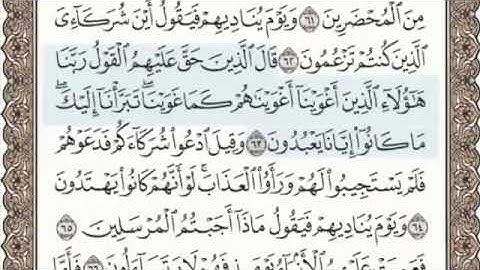 مِنَ ٱلْمُحْضَرِينَ ٦١ وَيَوْمَ يُنَادِيهِمْ فَيَقُولُ أَيْنَ شُرَكَآءِيَ
ٱلَّذِينَ كُنتُمْ تَزْعُمُونَ ٦٢ قَالَ ٱلَّذِينَ حَقَّ عَلَيْهِمُ ٱلْقَوْلُ رَبَّنَا
هَٰٓؤُلَآءِ ٱلَّذِينَ أَغْوَيْنَآ أَغْوَيْنَٰهُمْ كَمَا غَوَيْنَا ۖ تَبَرَّأْنَآ إِلَيْكَ ۖ
مَا كَانُوٓا۟ إِيَّانَا يَعْبُدُونَ ٦٣ وَقِيلَ ٱدْعُوا۟ شُرَكَآءَكُمْ فَدَعَوْهُمْ
فَلَمْ يَسْتَجِيبُوا۟ لَهُمْ وَرَأَوُا۟ ٱلْعَذَابَ ۚ لَوْ أَنَّهُمْ كَانُوا۟ يَهْتَدُونَ
٦٤ وَيَوْمَ يُنَادِيهِمْ فَيَقُولُ مَاذَآ أَجَبْتُمُ ٱلْمُرْسَلِينَ ٦٥
فَعَمِيَتْ عَلَيْهِمُ ٱلْأَنۢبَآءُ يَوْمَئِذٍ فَهُمْ لَا يَتَسَآءَلُونَ ٦٦ فَأَمَّا